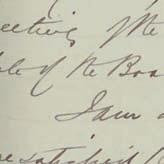 eeting Me
ble of the Boa
I am
satisfied